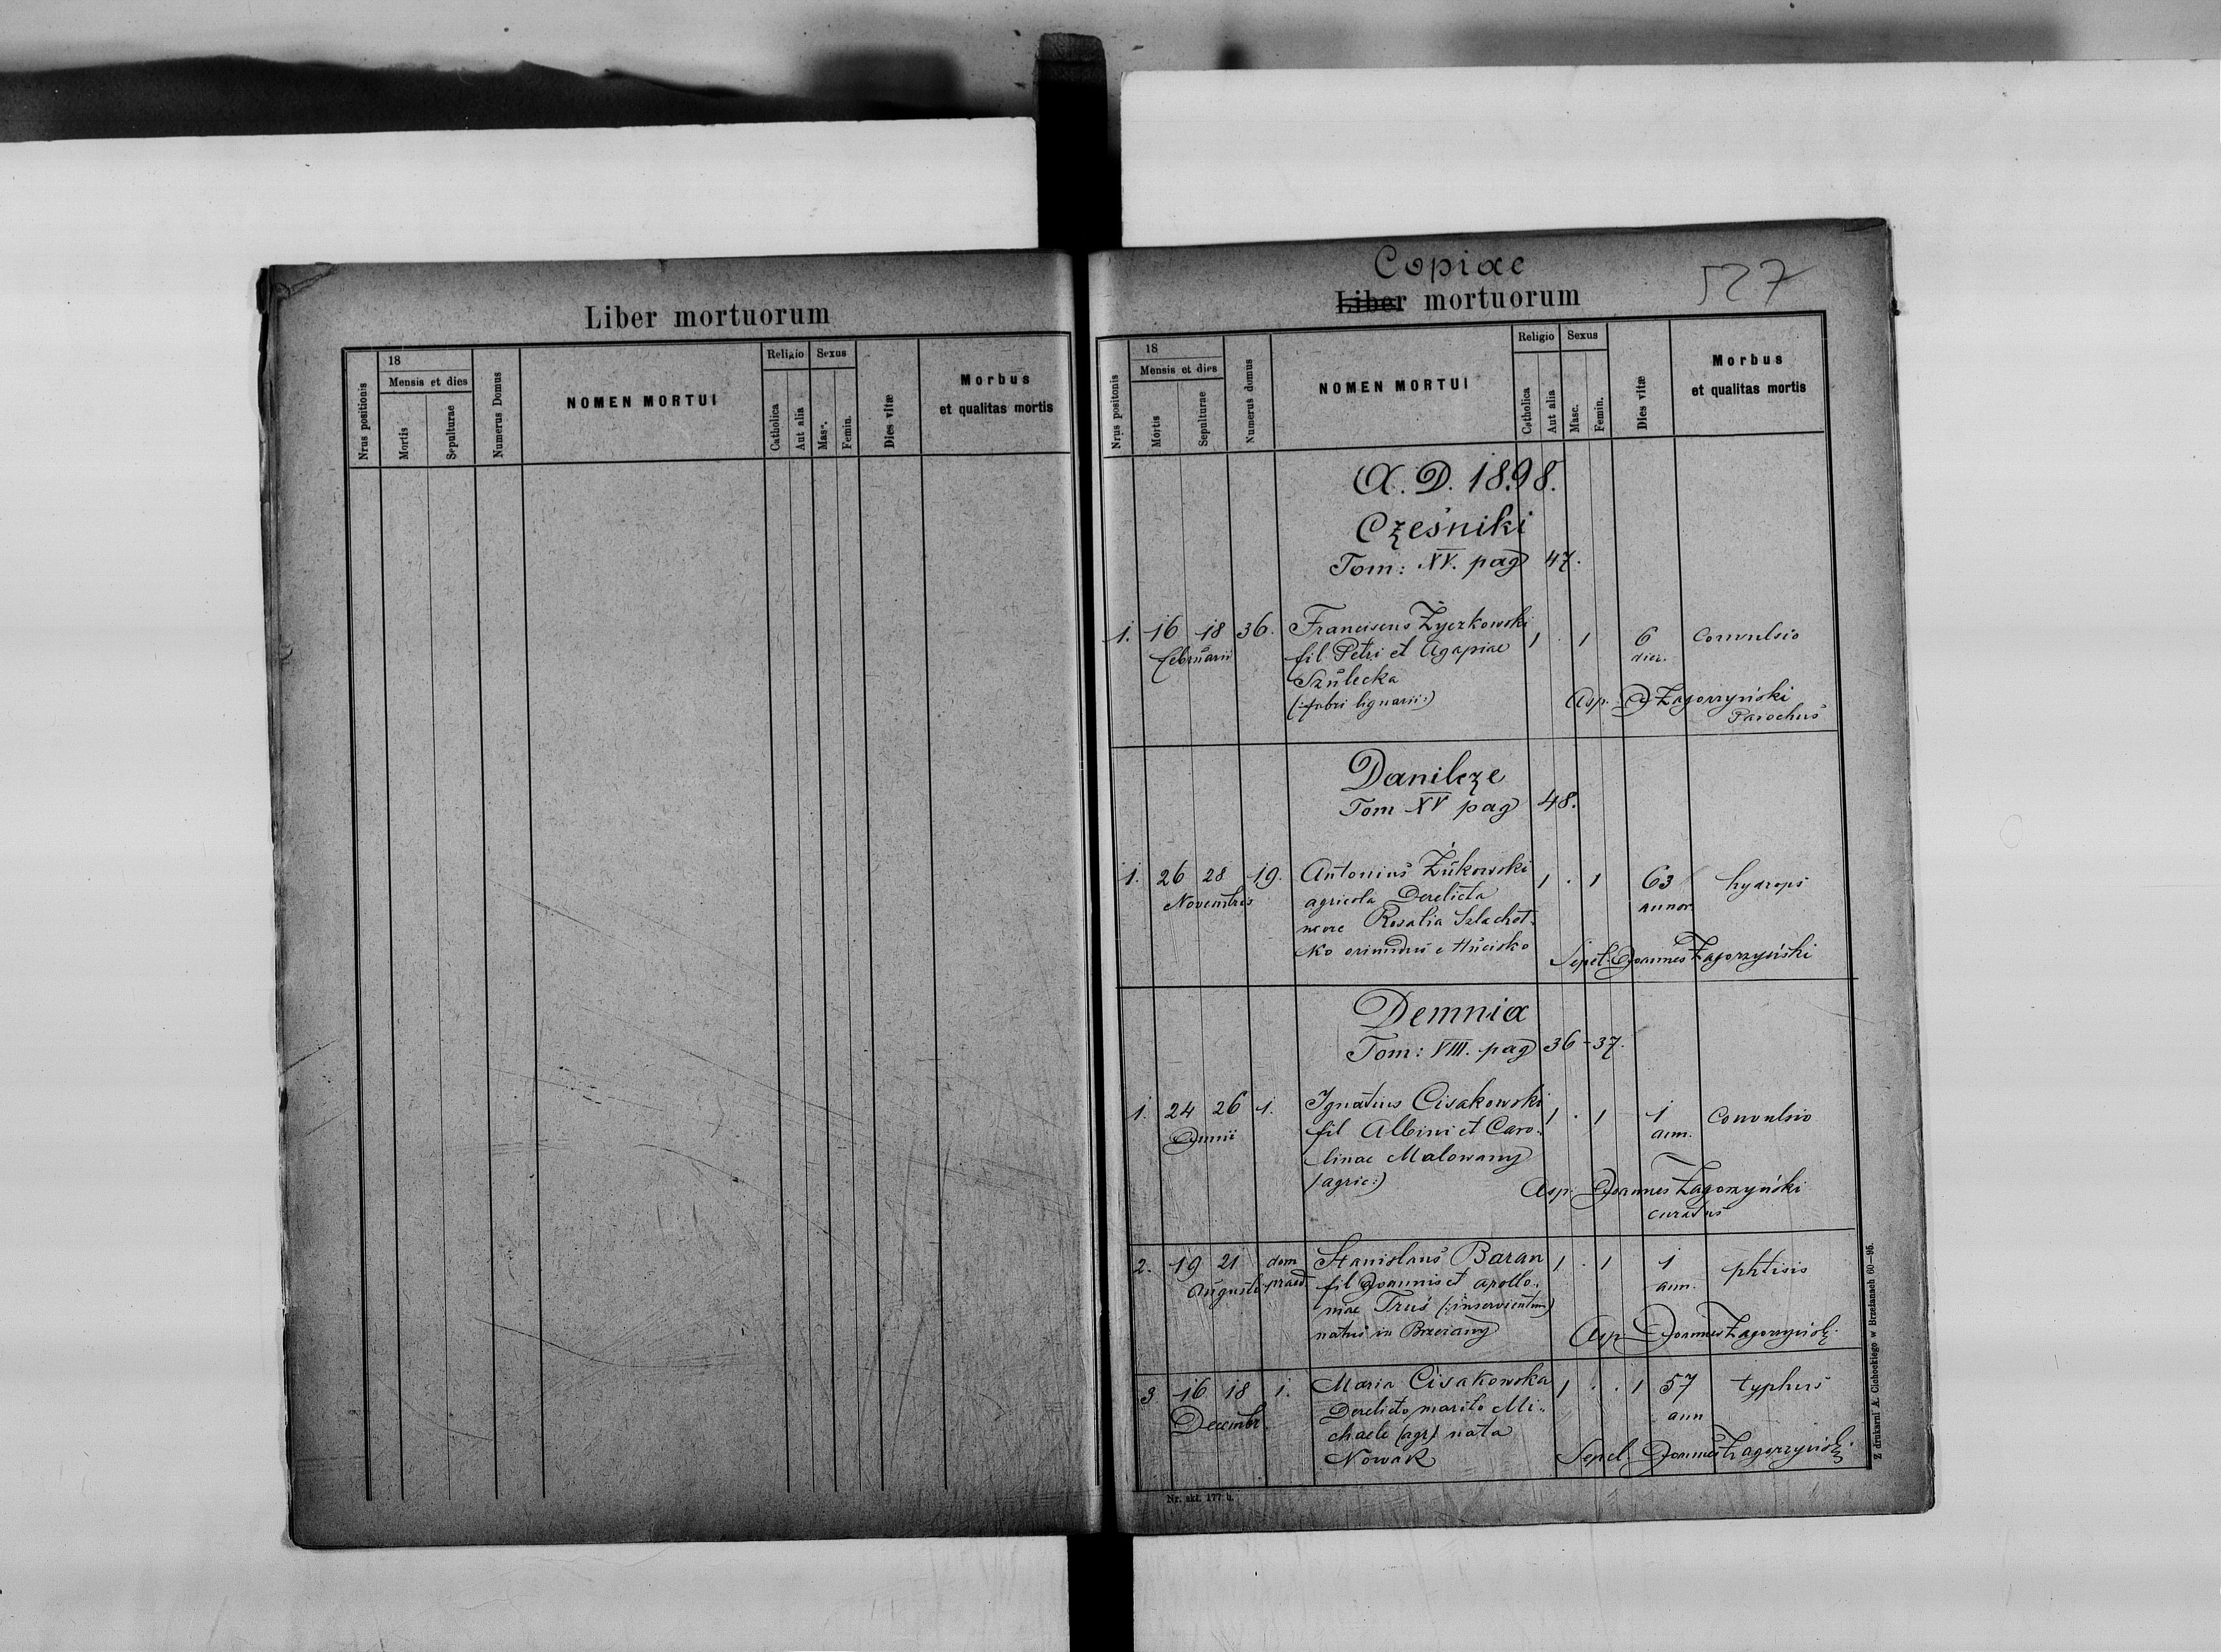 Liber mortuorum
Nrus positionis
18
Mensis et dies
Mortis
Sepulturae
Numerus Domus
NOMEN MORTUI
Religio
Catholica
Aut alia
Sexus
Masc.
Femin.
Dies vitæ
Morbus
et qualitas mortis
Copiae
527
Liber mortuorum
Nrus positonis
18
Mensis et dies
Mortis
Sepulturae
Numerus domus
NOMEN MORTUI
Religio
Catholica
Aut alia
Sexus
Masc.
Femin.
Dies vitæ
Morbus
et qualitas mortis
A. D. 1898.
Cześniki
Tom: XV. pag 47.
1. 16 18 36. Franciscus Życzkowski 1 . 1 6 Convulsio
februarii fil Petri et Agapiae dier.
Szulecka
(:fabri lignarii:) Asp. J Zagorzyński
Parochus
Danilcze
Tom XV pag 48.
1. 26 28 19. Antonius Żukowski 1 . 1 63 hydrops
Novembris agricola Derelicta annor.
uxore Rosalia Szlachot-
ko oriundus e Hucisko Sepel. Joannes Zagorzyński
Demnia
Tom: VIII. pag 36-37.
1. 24 26 1. Ignatius Cisakowski 1 . 1 1 Convulsio
Junii fil Albini et Caro- ann.
linae Malowany
(agric:) Asp. Joannes Zagorzyński
curatus
2. 19 21 dom Stanislaus Baran 1 . 1 1 phtisis
Augusti praed. fil Joannis et Apollo- ann.
niae Truś (:inservientium)
natus in Brzeżany Asp Joannes Zagorzyński
3 16 18 1. Maria Cisakowska 1 . . 1 57 typhus
Decembr. Derelicto marito Mi- ann
chaele (agr) nata
Nowak Sepel. Joannes Zagorzyński
Nr. skł. 177 b.
Z drukarni A. Cichockiego w Brzeżanach 60—95.